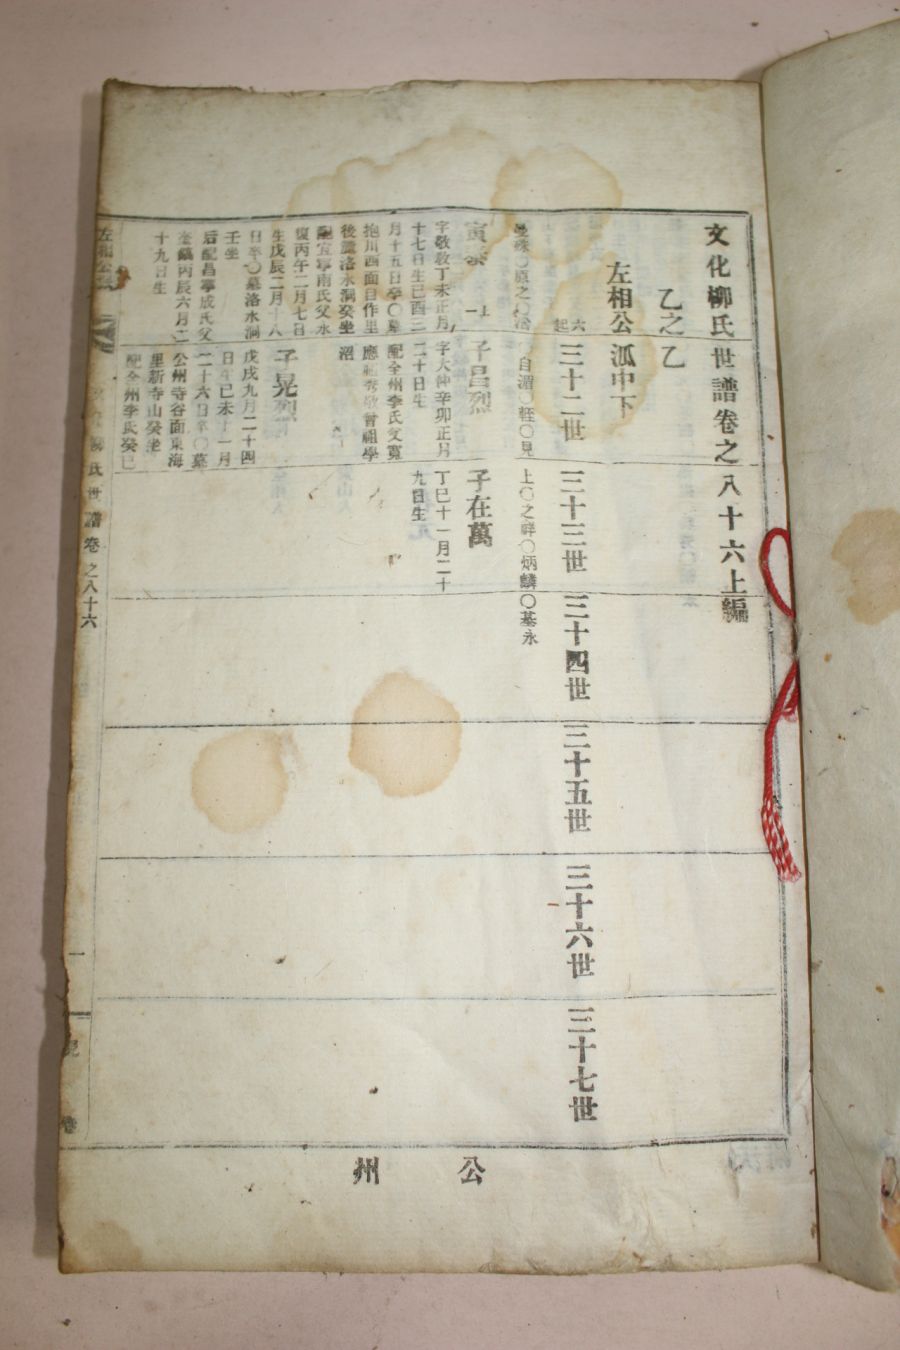 文化柳氏世譜卷之八十六上編
乙之乙
左相公派中下
六起
三十二世
三十三世
三十四世
三十五世
三十六世
三十七世
上〇之祥〇炳麟〇基永
寅
字敬敎丁未正月
十七日生己酉二
月十五日卒〇墓
抱川西面自作里
後麓洛水洞癸坐
配宜寧南氏父永
復丙午二月七日
生戊辰二月十八
日卒〇墓洛水洞
壬坐
后配昌寧成氏父
奎鎬丙辰六月二
十九日生
子昌烈
字大仲辛卯正月
二十日生
配全州李氏父寬
應祖秀敬曾祖學
沼
子晃烈
戊戌九月二十四
日生己未十一月
二十六日卒〇墓
公州寺谷面東海
里新寺山癸坐
配全州李氏癸巳
子在萬
丁巳十一月二十
九日生
左相公
氏世譜卷之八十六
一
公州